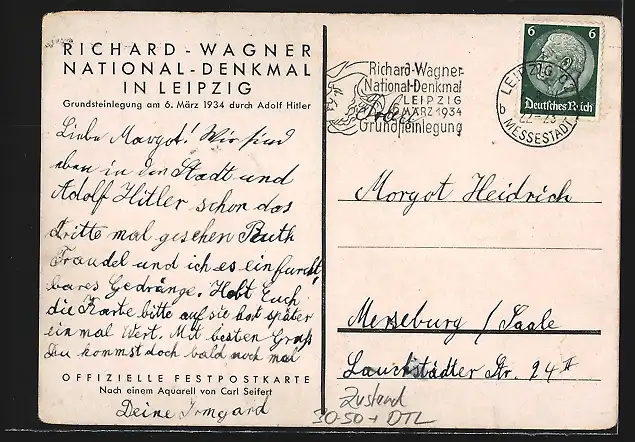 RICHARD - WAGNER
NATIONAL - DENKMAL
IN LEIPZIG
Grundsteinlegung am 6. März 1934 durch Adolf Hitler
Liebe Margot! Wir sind
eben in der Stadt und
Adolf Hitler schon das
dritte mal gesehen Ruth
Traudel und ich es ein furcht
bares Gedränge. Hebt Euch
die Karte bitte auf sie hat später
einmal Wert. Mit besten Gruß
Du kommst doch bald noch mal
OFFIZIELLE FESTPOSTKARTE
Nach einem Aquarell von Carl Seifert
Deine Irmgard
Richard-Wagner-
National-Denkmal
LEIPZIG
6. MÄRZ 1934
Grundsteinlegung
LEIPZIG
b
22-23
MESSESTADT
6 6
Deutsches Reich
Margot Heidrich
Merseburg / Saale
Lauchstädter Str. 24 II
Zustand
30-50+ DTL